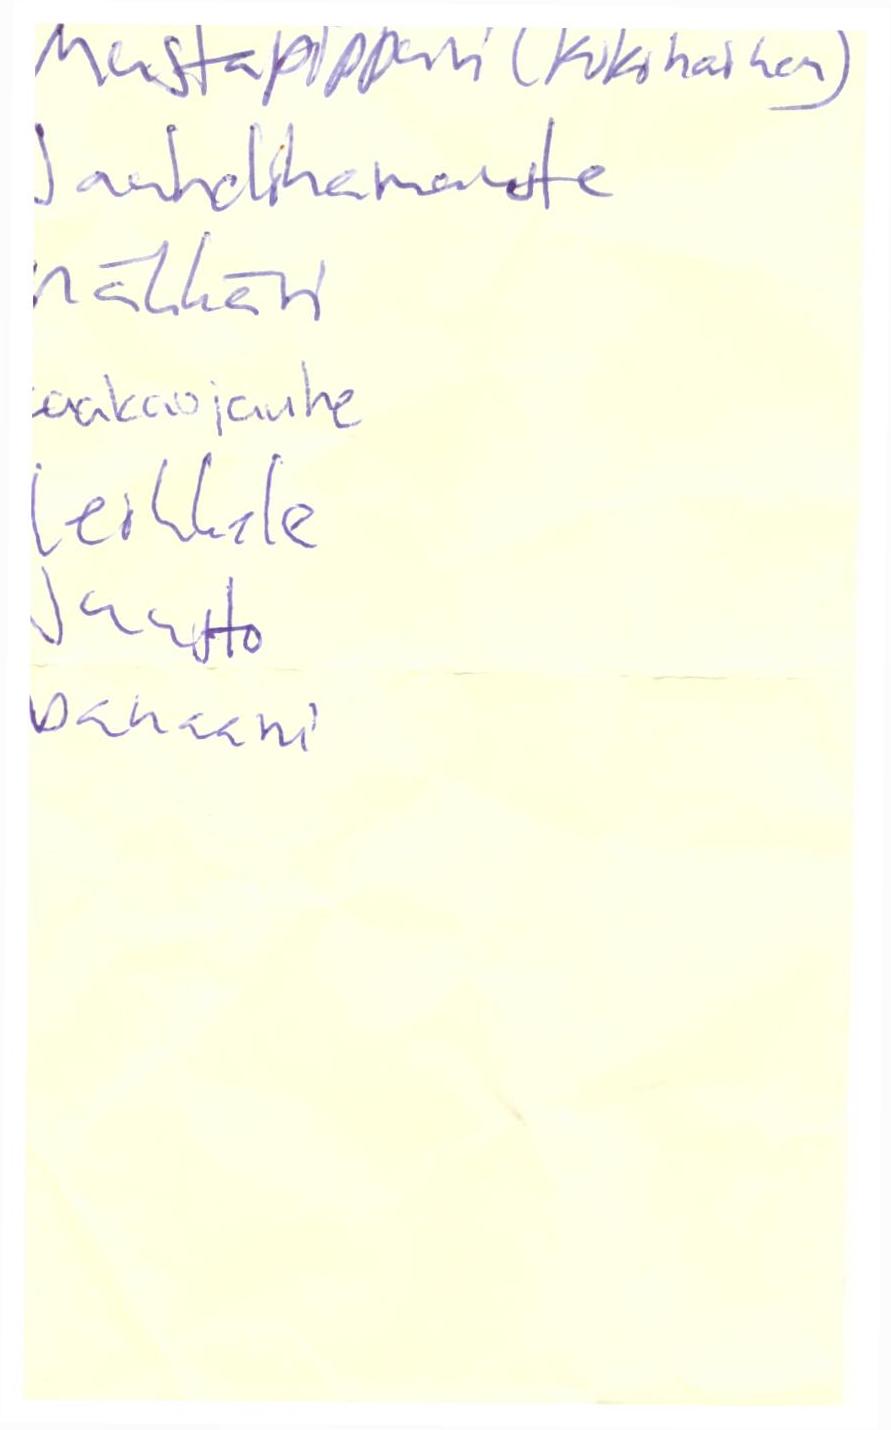 Mustapippuri (kokonainen)
Jauhelihamauste
näkkäri
kaakaojauhe
leikkele
Juusto
banaani